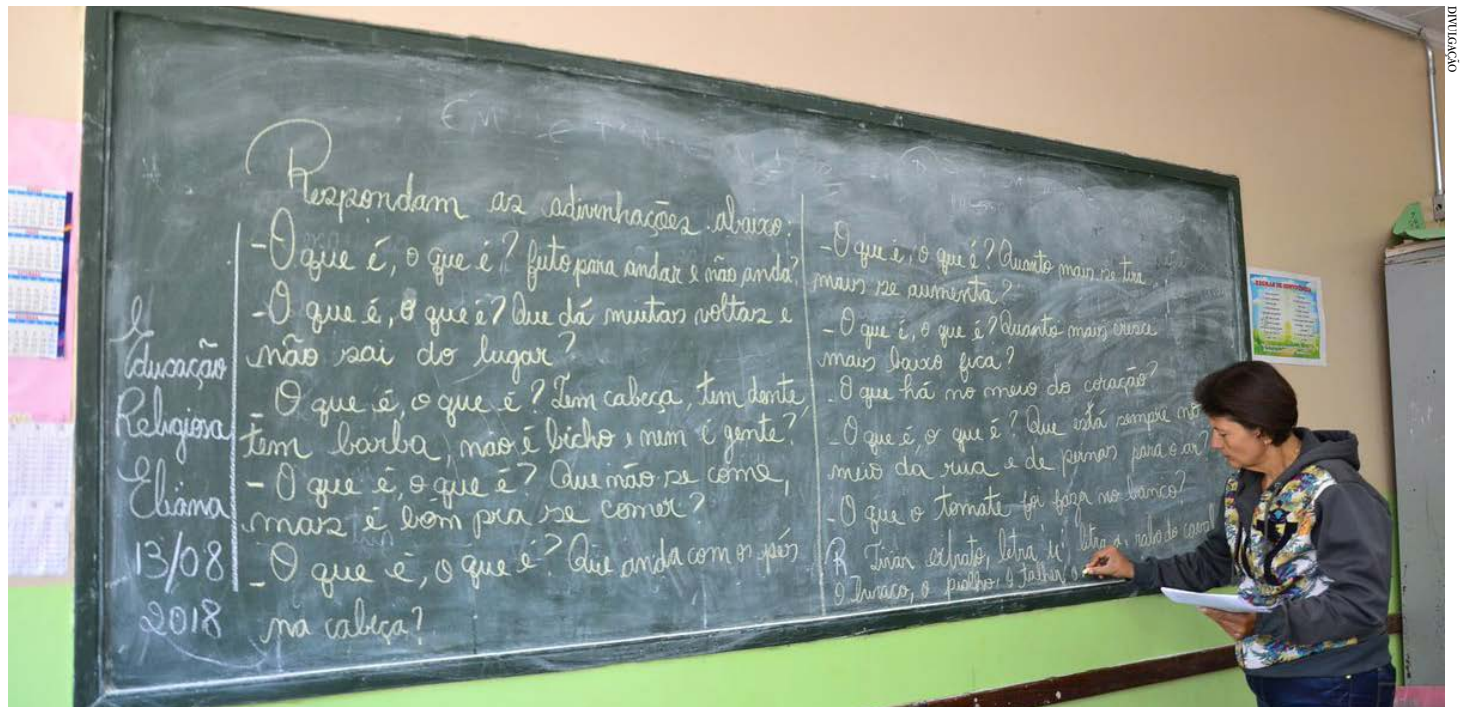 Respondam as adivinhações abaixo:
- O que é, o que é? feito para andar e não anda?
- O que é, o que é? Que dá muitas voltas e
não sai do lugar?
- O que é, o que é? Tem cabeça, tem dente
tem barba, não é bicho e nem é gente?
- O que é, o que é? Que não se come,
mas é bom pra se comer?
- O que é, o que é? Que anda com os pés
na cabeça?
- O que é, o que é? Quanto mais se tira
mais se aumenta?
- O que é, o que é? Quanto mais cresce
mais baixo fica?
- O que há no meio do coração?
- O que é, o que é? Que está sempre no
meio da rua e de pernas para o ar?
- O que o tomate foi fazer no banco?
R Tirar extrato, letra "u", letra a, rabo do caval
O buraco, o piolho, o talher, o
Educação
Religiosa
Eliana
13/08
2018
DIVULGAÇÃO